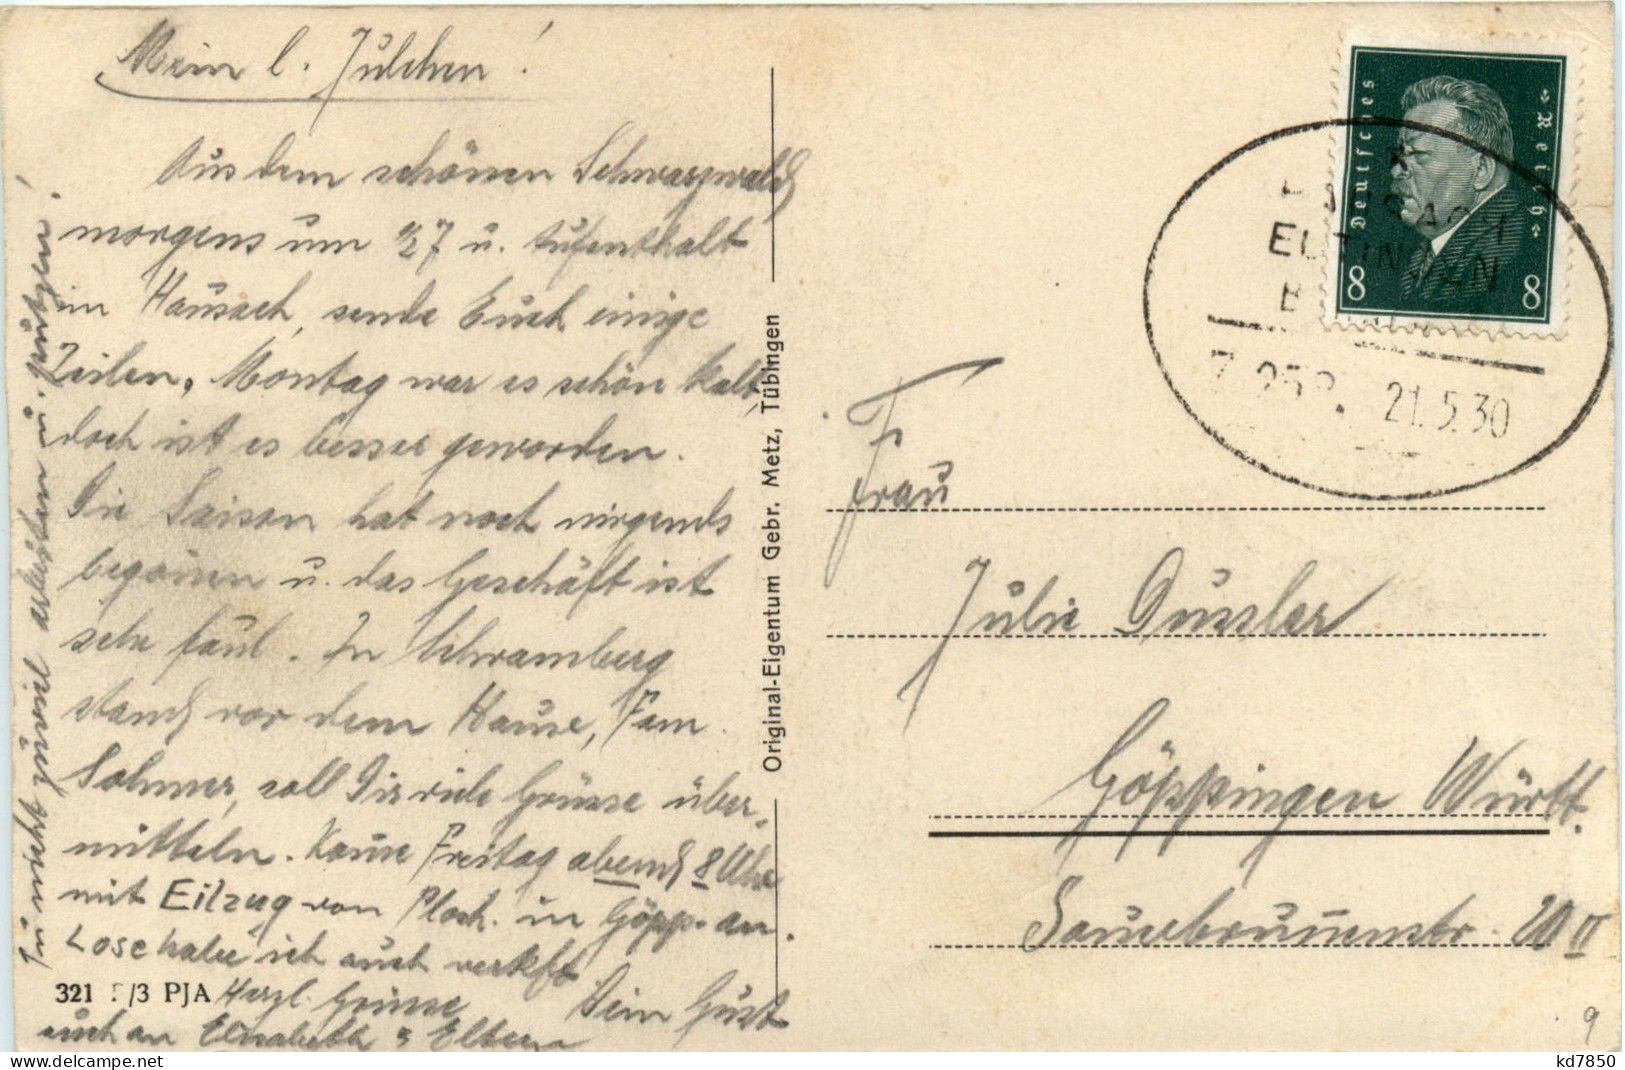 Mein l. Julchen!
Aus dem schönen Schwarzwald
morgens um ½7 u. Aufenthalt
im Hausach, sende Euch einige
Zeilen. Montag war es schön kalt,
doch ist es besser geworden.
Die Saison hat noch nirgends
begonnen u. das Geschäft ist
sehr faul. In Schramberg
stand vor dem Hause, Fam.
Sohmer, soll Dir viele Grüsse über-
mitteln. Komme Freitag abend 8 Uhr
mit Eilzug von Ploch. in Göpp. an.
Lose habe ich auch verkft
Herzl. Grüsse Dein Gust
auch an Elisabeth & Eltern
Tu nicht zuviel arbeiten u. putzen!
321 /3 PJA
Original-Eigentum Gebr. Metz, Tübingen
Deutsches Reich
8 8
21.5.30
Frau
Julie Dussler
Göppingen Württ.
Sauerbrunnenstr. 20 II
9
kd7850